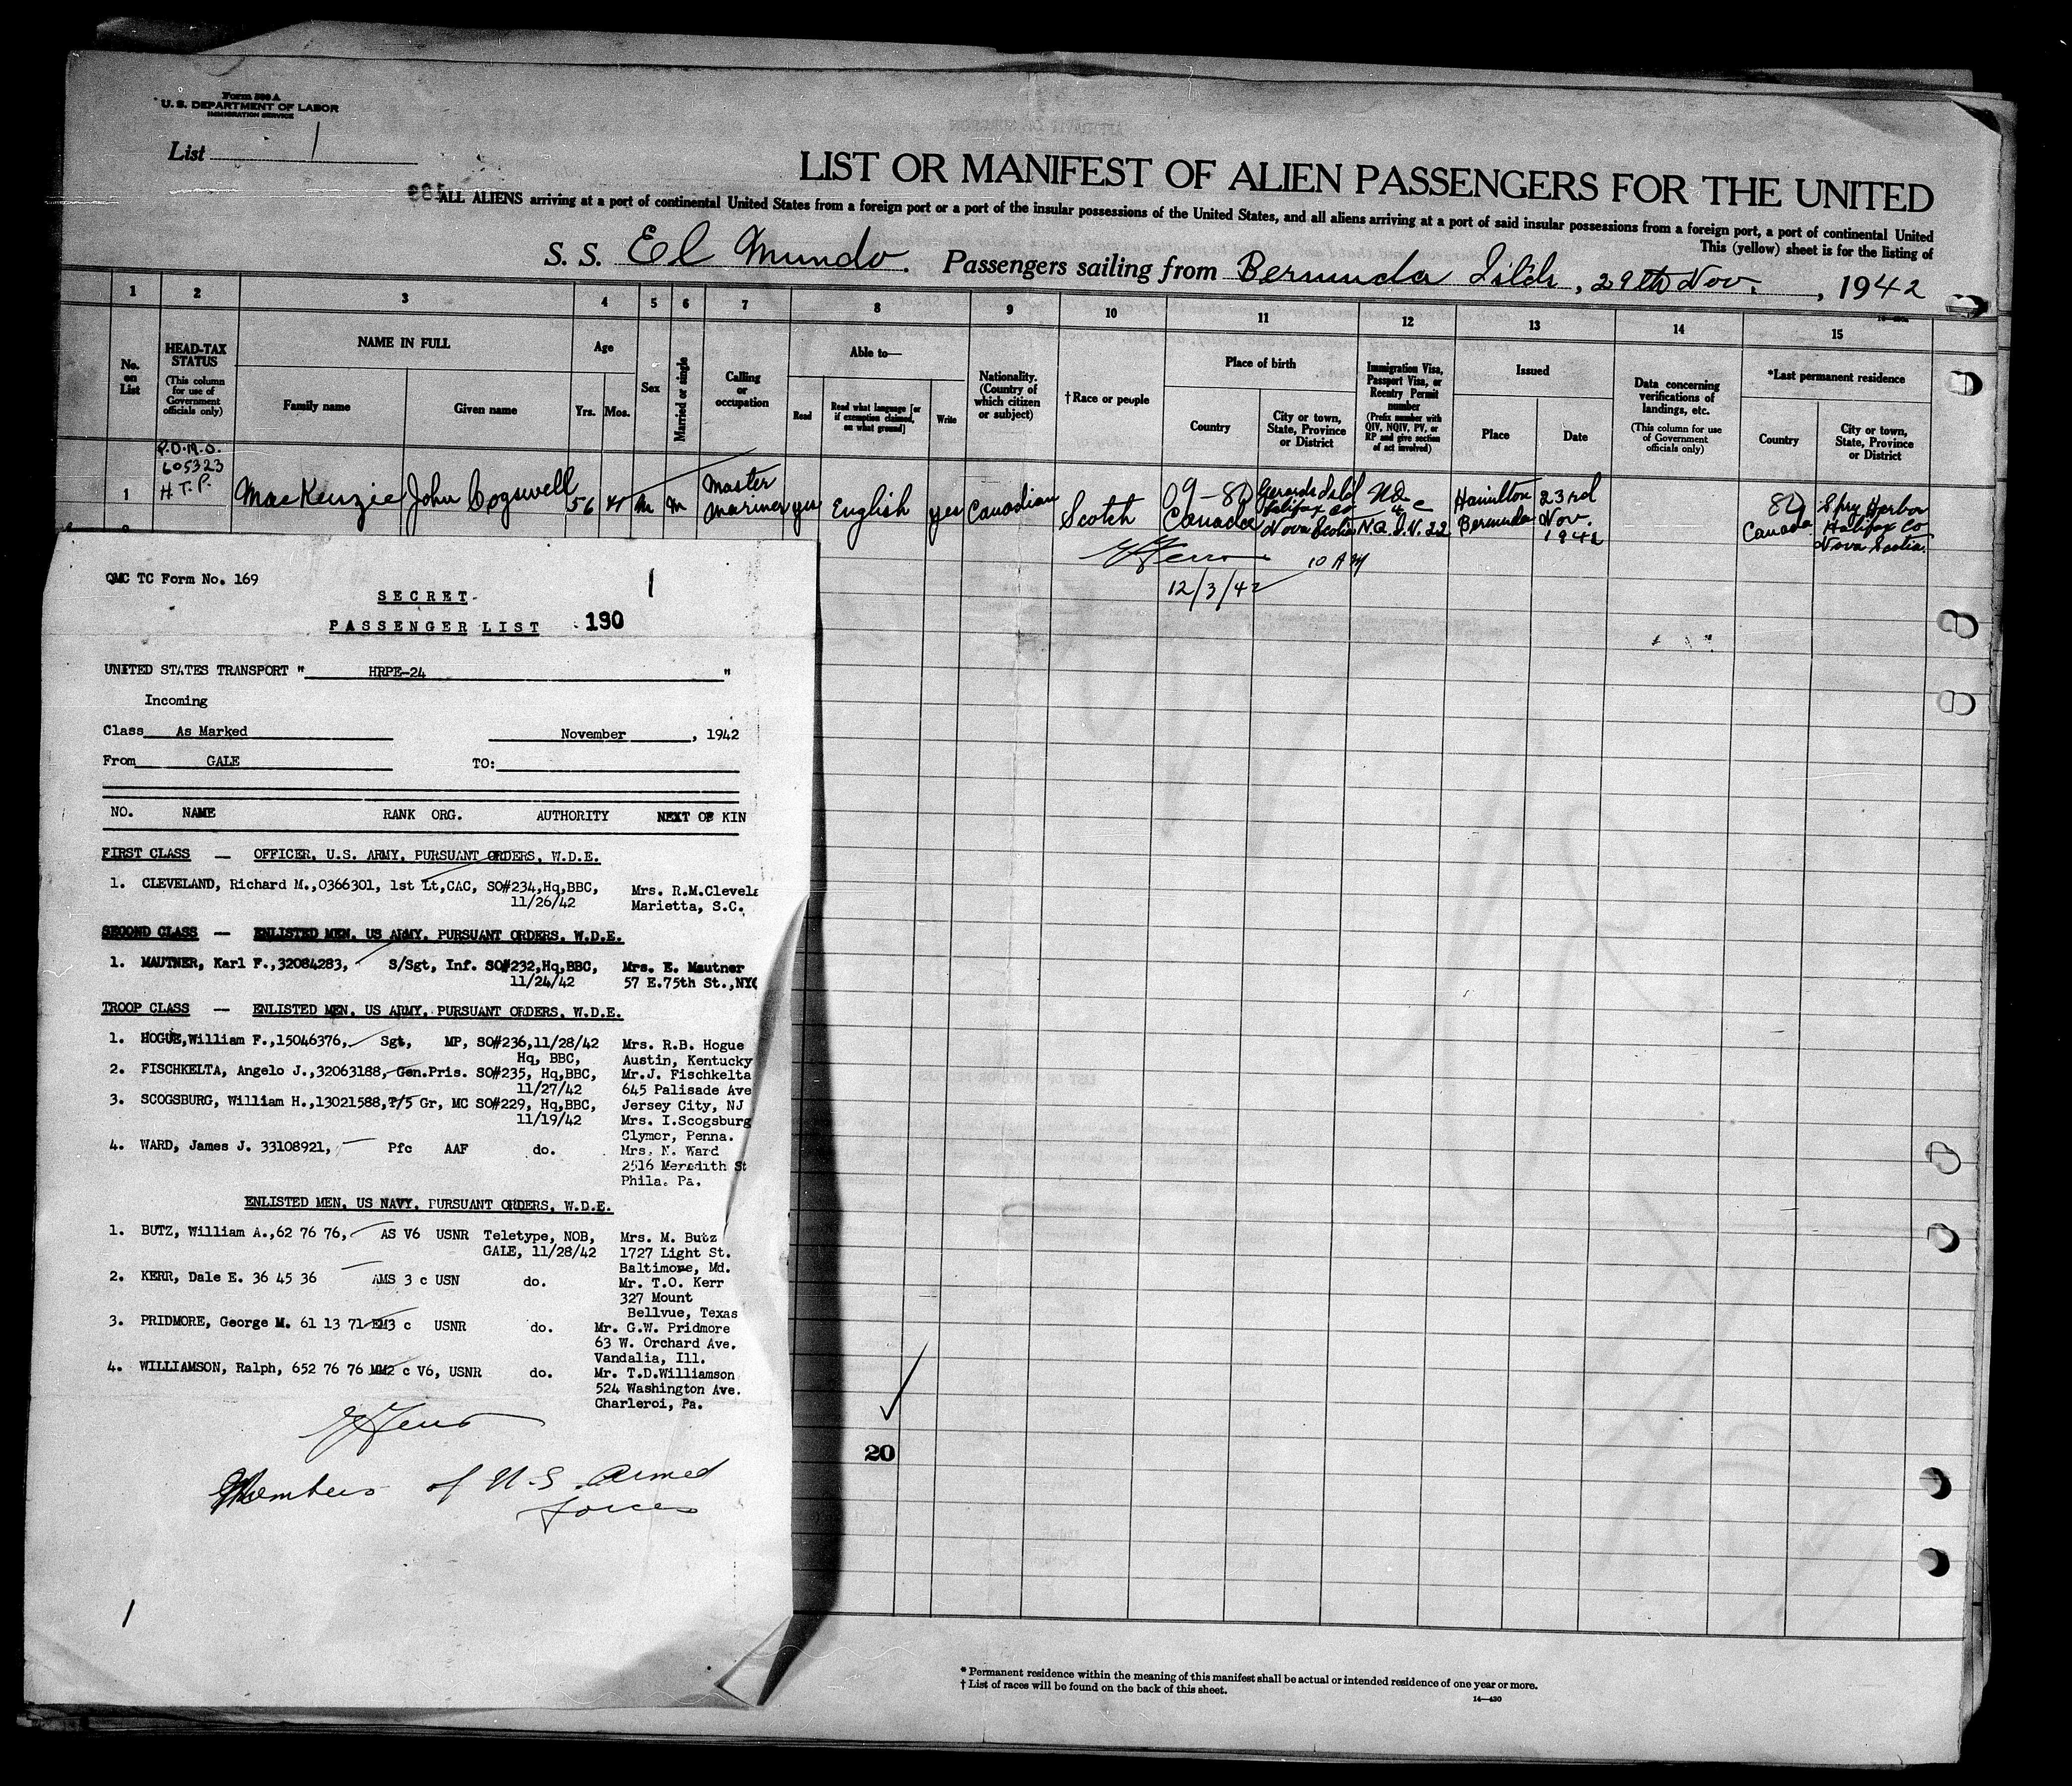 Form 500 A
U. S. DEPARTMENT OF LABOR
IMMIGRATION SERVICE
List 1
LIST OR MANIFEST OF ALIEN PASSENGERS FOR THE UNITED
ALL ALIENS arriving at a port of continental United States from a foreign port or a port of the insular possessions of the United States, and all aliens arriving at a port of said insular possessions from a foreign port, a port of continental United
This (yellow) sheet is for the listing of
S. S. El Mundo. Passengers sailing from Bermuda Islds, 29th Nov., 1942
1 2 3 4 5 6 7 8 9 10 11 12 13 14 15
No. on List
HEAD-TAX STATUS
(This column for use of Government officials only)
NAME IN FULL
Family name
Given name
Age
Yrs. Mos.
Sex
Married or single
Calling or occupation
Able to—
Read
Read what language [or if exemption claimed, on what ground]
Write
Nationality. (Country of which citizen or subject)
†Race or people
Place of birth
Country
City or town, State, Province or District
Immigration Visa, Passport Visa, or Reentry Permit number
(Prefix number with QIV, NQIV, PV, or RP and give section of act involved)
Issued
Place
Date
Data concerning verifications of landings, etc.
(This column for use of Government officials only)
*Last permanent residence
Country
City or town, State, Province or District
P.O.M.O.
605323
H.T.P.
1 MacKenzie John Cogswell 56 4 m m Master mariner yes English yes Canadian Scotch 09-80 Canada Gerards Isld Halifax Co Nova Scotia N.Q.I.V. 22 Hamilton Bermuda 23rd Nov. 1942 80 Canada Spry Harbor Halifax Co Nova Scotia.
10 AM
12/3/42
QMC TC Form No. 169
1
SECRET
PASSENGER LIST 190
UNITED STATES TRANSPORT " HRPE-24 "
Incoming
Class As Marked November, 1942
From GALE TO:
NO. NAME RANK ORG. AUTHORITY NEXT OF KIN
FIRST CLASS — OFFICER, U.S. ARMY, PURSUANT ORDERS, W.D.E.
1. CLEVELAND, Richard M.,0366301, 1st Lt,CAC, SO#234,Hq,BBC, Mrs. R.M.Clevela
11/26/42 Marietta, S.C.
SECOND CLASS — ENLISTED MEN, US ARMY, PURSUANT ORDERS, W.D.E.
1. MAUTNER, Karl F.,32084283, S/Sgt, Inf. SO#232,Hq,BBC, Mrs. E. Mautner
11/24/42 57 E.75th St.,NYC
TROOP CLASS — ENLISTED MEN, US ARMY, PURSUANT ORDERS, W.D.E.
1. HOGUE,William F.,15046376, Sgt, MP, SO#236,11/28/42 Mrs. R.B. Hogue
Hq, BBC, Austin, Kentucky
2. FISCHKELTA, Angelo J.,32063188, Gen.Pris. SO#235, Hq,BBC, Mr.J. Fischkelta
11/27/42 645 Palisade Ave
3. SCOGSBURG, William H.,13021588,T/5 Gr, MC SO#229, Hq,BBC, Jersey City, NJ
11/19/42 Mrs. I.Scogsburg
Clymer, Penna.
4. WARD, James J. 33108921, Pfc AAF do. Mrs. N. Ward
2516 Meredith St
Phila. Pa.
ENLISTED MEN, US NAVY, PURSUANT ORDERS, W.D.E.
1. BUTZ, William A.,62 76 76, AS V6 USNR Teletype, NOB, Mrs. M. Butz
GALE, 11/28/42 1727 Light St.
Baltimore, Md.
2. KERR, Dale E. 36 45 36 AMS 3 c USN do. Mr. T.O. Kerr
327 Mount
Bellvue, Texas
3. PRIDMORE, George M. 61 13 71 EM3 c USNR do. Mr. G.W. Pridmore
63 W. Orchard Ave.
Vandalia, Ill.
4. WILLIAMSON, Ralph, 652 76 76 MM2 c V6, USNR do. Mr. T.D.Williamson
524 Washington Ave.
Charleroi, Pa.
Members of U.S. Armed
forces
20
1
* Permanent residence within the meaning of this manifest shall be actual or intended residence of one year or more.
† List of races will be found on the back of this sheet.
14—430